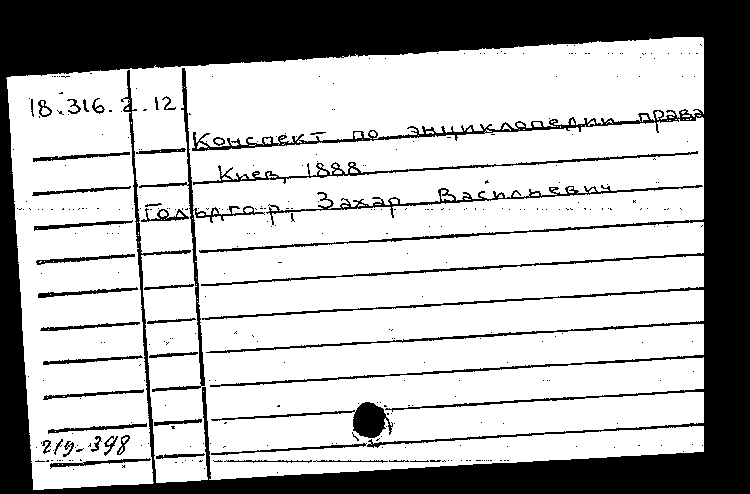 18.316.2.12.
Конспект по энциклопедии права
Киев, 1888
Гольдгор, Захар Васильевич
219-398